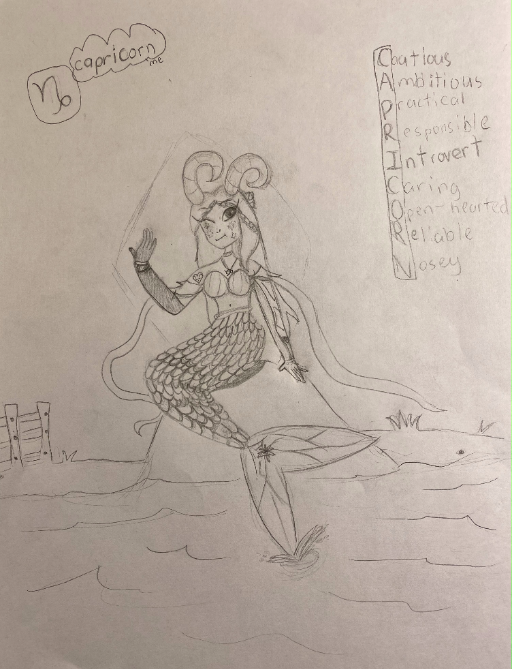 capricorn
me
Coutious
Ambitious
Practical
Responsible
Introvert
Caring
Open-hearted
Reliable
Nosey